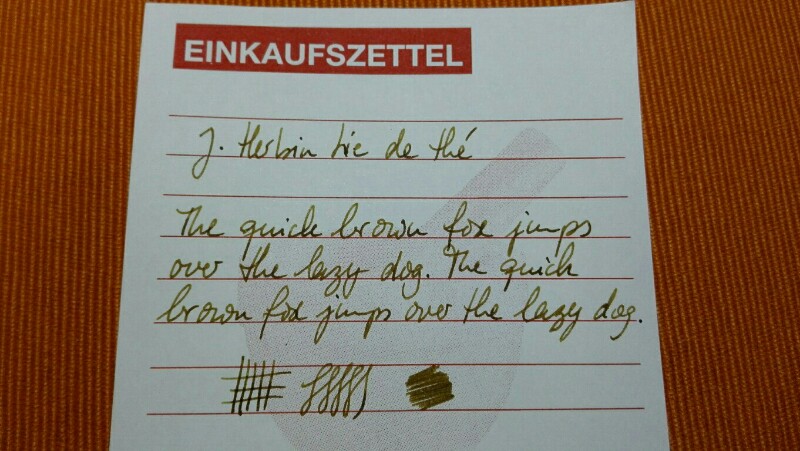 EINKAUFSZETTEL
J. Herbin Lie de thé
The quick brown fox jumps
over the lazy dog. The quick
brown fox jumps over the lazy dog.